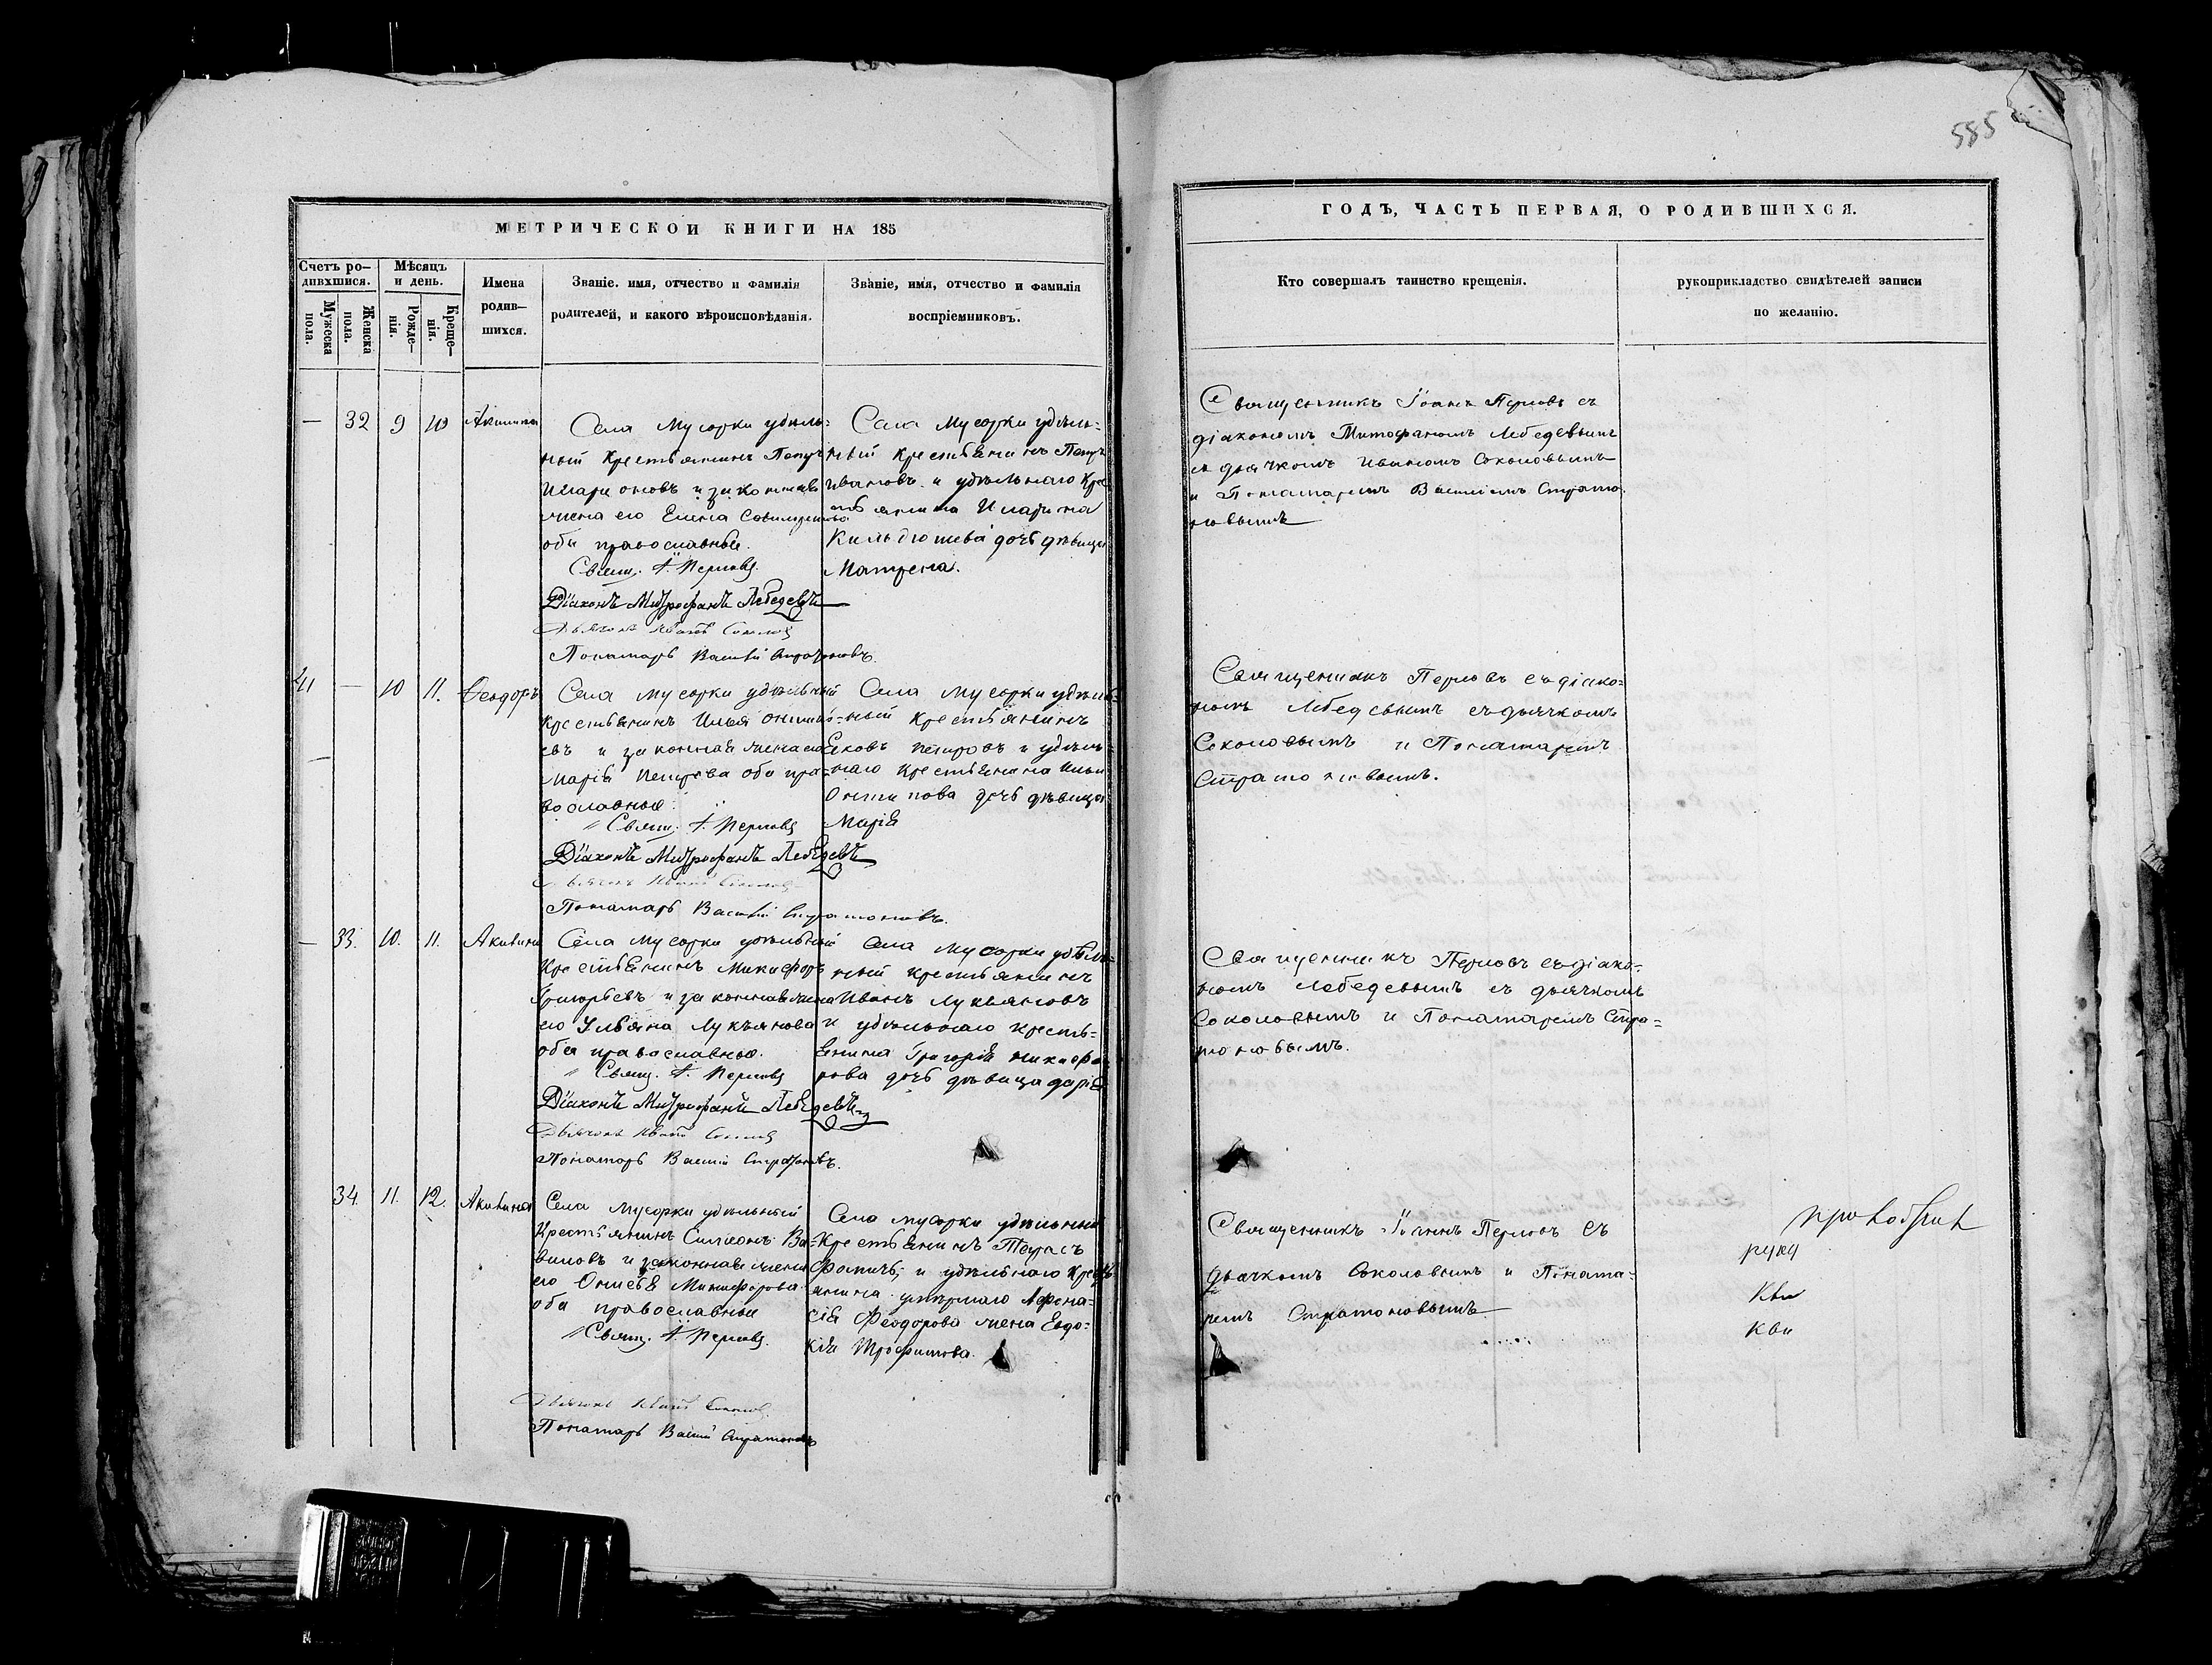 585
МЕТРИЧЕСКОЙ КНИГИ НА 185
ГОДЪ, ЧАСТЬ ПЕРВАЯ, О РОДИВШИХСЯ.
Счетъ ро-
дившихся.
Мужеска
пола.
Женска
пола.
Мѣсяцъ
и день.
Рожде-
нія.
Креще-
нія.
Имена
родив-
шихся.
Званіе. имя, отчество и фамилія
родителей, и какого вѣроисповѣданія.
Званіе, имя, отчество и фамилія
воспріемниковъ.
Кто совершалъ таинство крещенія.
рукоприкладство свидѣтелей записи
по желанію.
— 32 9 10 Акилина
Села Мусорки удѣль=
ный Крестьянинъ Петръ
Иларіоновъ и законная
жена его Елена
оба православные.
Свящ. І. Перловъ.
Діаконъ Митрофанъ Лебедевъ
Дьячокъ Иванъ Соколовъ
Понамарь Василій Стратоновъ.
Села Мусорки удѣль=
ный крестьянинъ Петръ
Ивановъ и удѣльнаго кре
стьянина Иларіона
Кильдюшева дочь дѣвица
Матрена.
Священникъ Іоаннъ Перловъ съ
діакономъ Митрофаномъ Лебедевымъ
съ дьячкомъ Иваномъ Соколовымъ
и Понамаремъ Василіемъ Страто
новымъ
41 — 10 11. Ѳеодоръ
Села Мусорки удѣльный
крестьянинъ Илья
евъ и законная жена его
Марія Петрова оба пра=
вославные.
Свящ. І. Перловъ
Діаконъ Митрофанъ Лебедевъ
Дьячокъ Иванъ Соколовъ
Понамарь Василій Стратоновъ.
Села Мусорки удѣль=
ный крестьянинъ
Яковъ Петровъ и удѣль=
наго крестьянина Ильи
Онтипова дочь дѣвица
Марія
Священникъ Перловъ съ діако=
номъ Лебедевымъ съ дьячкомъ
Соколовымъ и Понамаремъ
Стратоновымъ.
— 33. 10. 11. Акилина
Села Мусорки удѣльный
Крестьянинъ Никифоръ
Григорьевъ и законная жена
его Ульяна Лукьянова
оба православные.
Свящ. І. Перловъ
Діаконъ Митрофанъ Лебедевъ
Дьячокъ Иванъ Соколовъ
Понамарь Василій Стратоновъ.
Села Мусорки удѣль=
ный крестьянинъ
Иванъ Лукьяновъ
и удѣльнаго кресть=
янина Григорія Никифо
рова дочь дѣвица Дарія
Священникъ Перловъ съ діако=
номъ Лебедевымъ съ дьячкомъ
Соколовымъ и Понамаремъ Стра=
тоновымъ.
34. 11. 12. Акилина
Села Мусорки удѣльный
Крестьянинъ Симеонъ Ва=
виловъ и законная жена
его Онисья Никифорова
оба православные
Свящ. І. Перловъ.
Дьячокъ Иванъ Соколовъ.
Понамарь Василій Стратоновъ
Села Мусорки удѣльный
Крестьянинъ Тарасъ
и удѣльнаго крест
янина умершаго Афона=
сія Феодорова жена Евдо=
кія Трофимова.
Священникъ Іоаннъ Перловъ съ
дьячкомъ Соколовымъ и Понама=
ремъ Стратоновымъ
руку